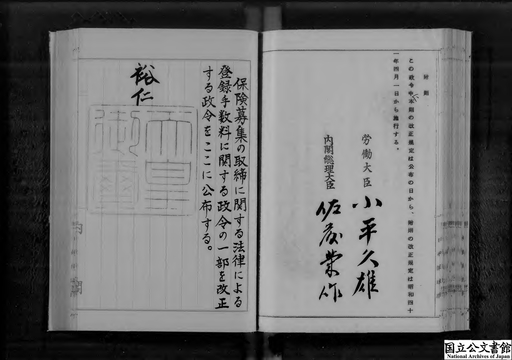 附則
この政令中本則の改正規定は公布の日から、附則の改正規定は昭和四十
一年四月一日から施行する。
労働大臣 小平久雄
内閣総理大臣 佐藤栄作
保険募集の取締に関する法律による
登録手数料に関する政令の一部を改正
する政令をここに公布する。
裕仁
天皇
御璽
国立公文書館
National Archives of Japan